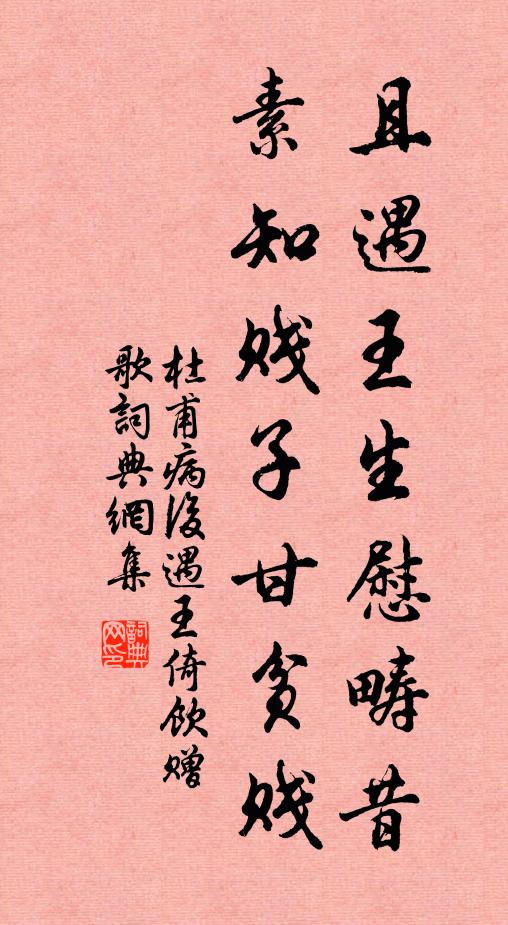 且遇王生慰疇昔
素知賤子甘貧賤
杜甫病後遇王倚飲贈
歌詞典網集
詞典网印